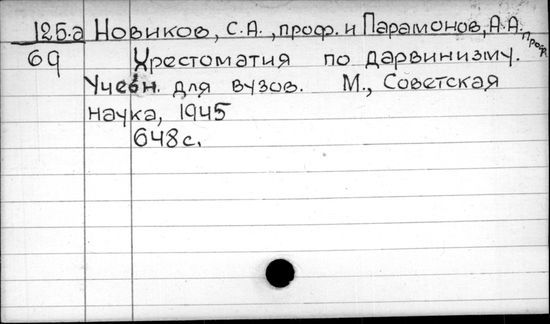 125.а Новиков, С.А., проф. и Парамонов, А.А. проф.
69 Хрестоматия по дарвинизму.
Учебн. для вузов. М., Советская
наука, 1945
648 с.